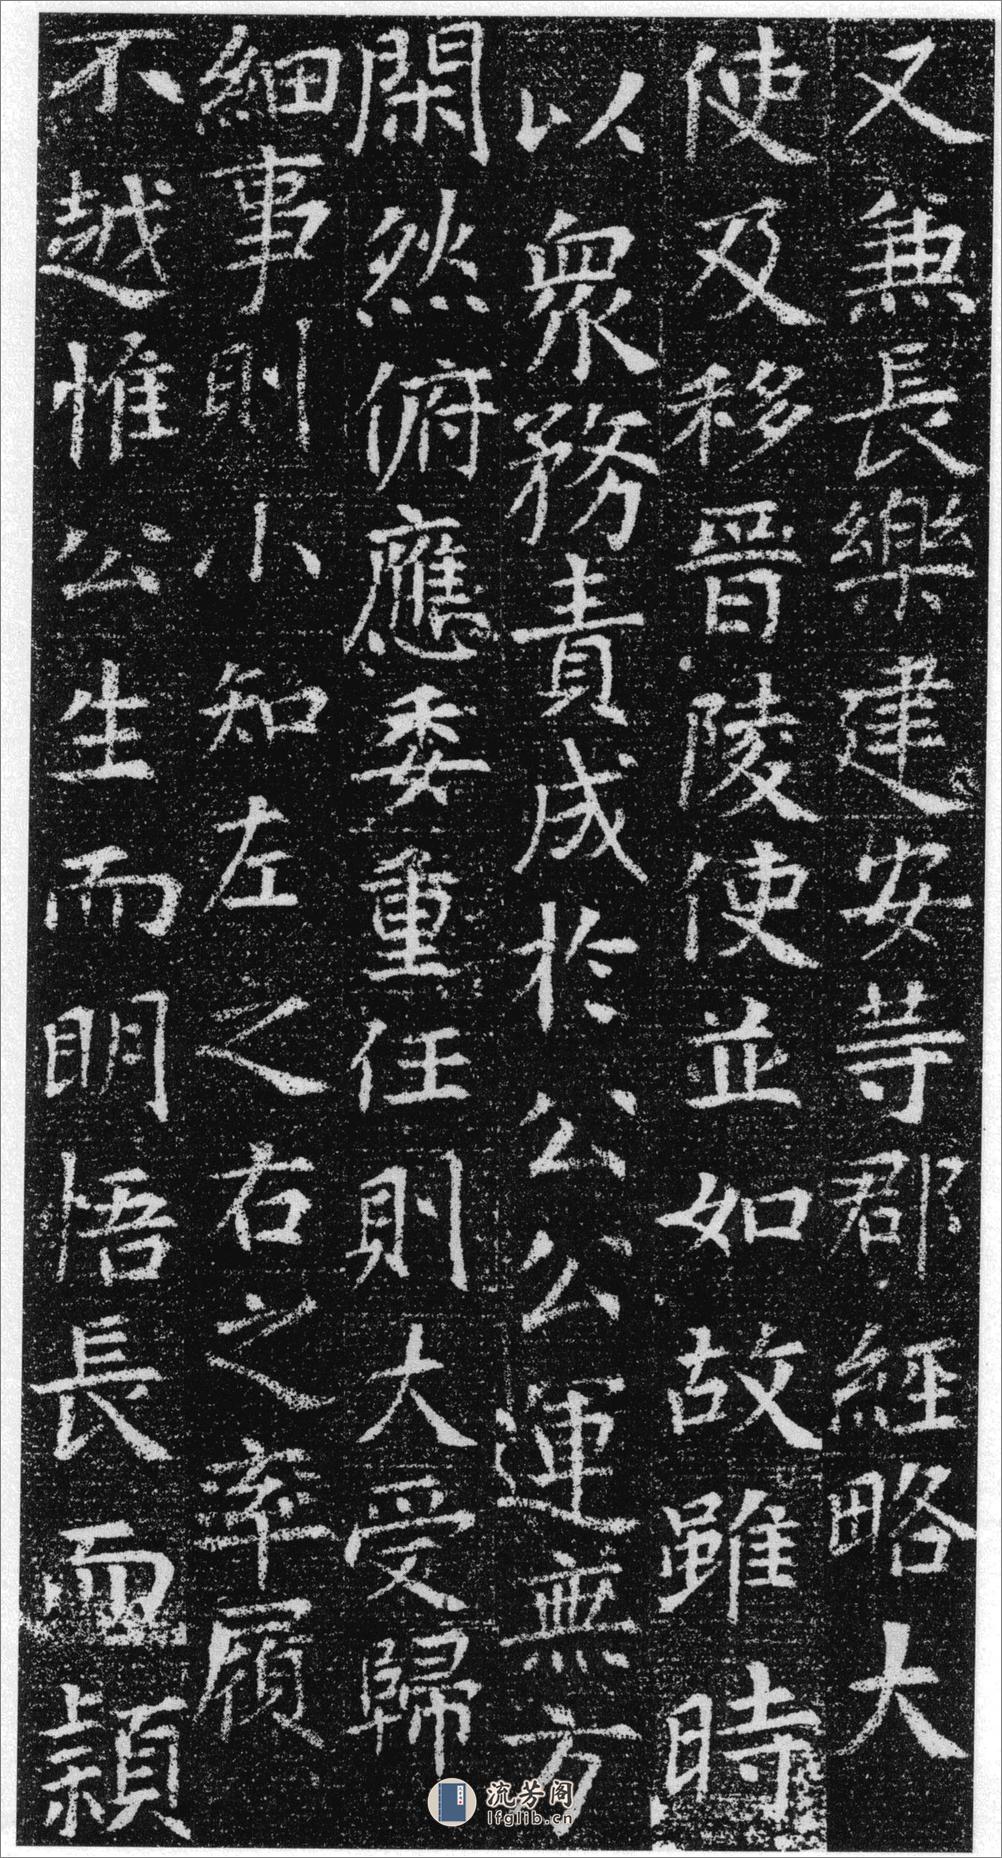 又兼長樂建安等郡經略大
使及移晉陵使並如故雖時
以衆務責成於公公運無方
閑然俯應委重任則大受歸
細事則小知左之右之率履
不越惟公生而明悟長而穎
流芳阁
lfglib.cn